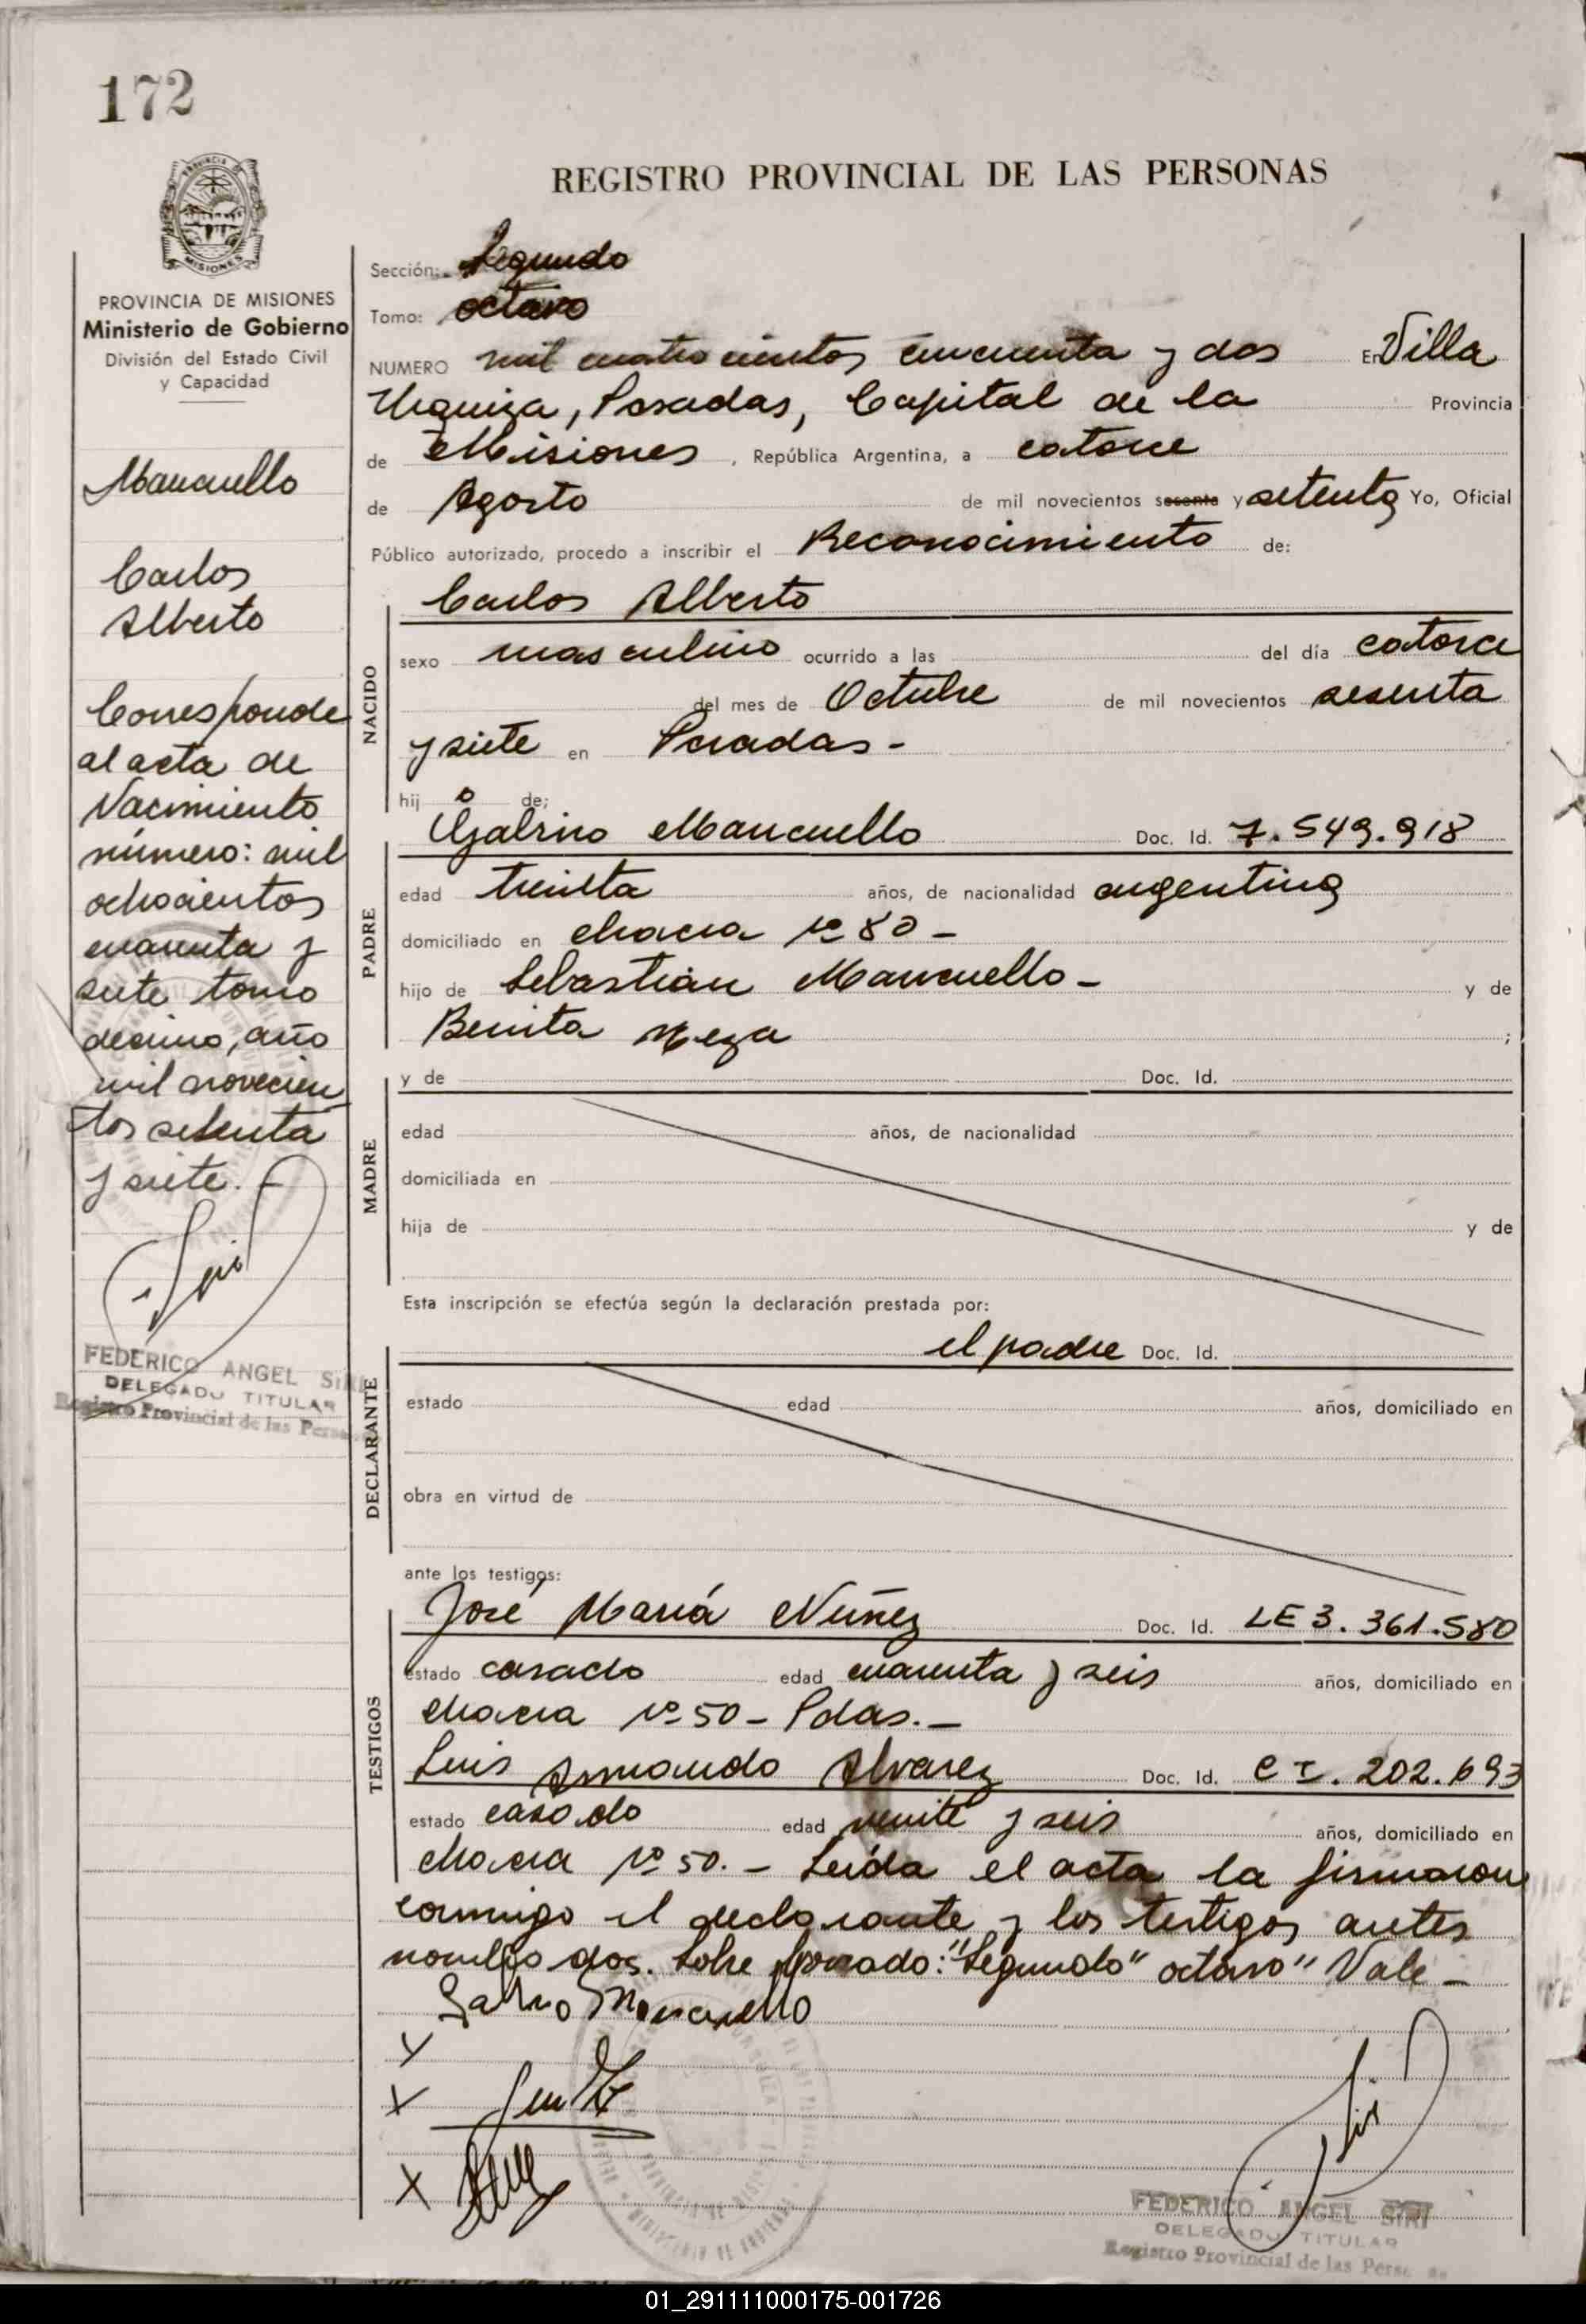 172
REGISTRO PROVINCIAL DE LAS PERSONAS
PROVINCIA DE MISIONES
Ministerio de Gobierno
División del Estado Civil
y Capacidad
Mancuello
Carlos
Alberto
Corresponde
al acta de
Nacimiento
número: mil
ochocientos
cuarenta y
siete tomo
décimo, año
mil novecien
tos setenta
y siete. -
FEDERICO ANGEL SIRI
DELEGADO TITULAR
Registro Provincial de las Perso
Sección: Segundo
Tomo: octavo
NUMERO mil cuatrocientos cincuenta y dos En Villa
Urquiza, Posadas, Capital de la Provincia
de Misiones, República Argentina, a catorce
de Agosto de mil novecientos sesenta y setenta Yo, Oficial
Público autorizado, procedo a inscribir el Reconocimiento de:
Carlos Alberto
NACIDO
sexo masculino ocurrido a las del día catorce
del mes de Octubre de mil novecientos sesenta
y siete en Posadas -
hij o de;
PADRE
Galrino Mancuello Doc. Id. 7.549.918
edad treinta años, de nacionalidad argentina
domiciliado en chacra Nº 80 -
hijo de Sebastián Mancuello - y de
Benita Meza ;
MADRE
y de Doc. Id.
edad años, de nacionalidad
domiciliada en
hija de y de
Esta inscripción se efectúa según la declaración prestada por:
DECLARANTE
el padre Doc. Id.
estado edad años, domiciliado en
obra en virtud de
ante los testigos:
TESTIGOS
José María Núñez Doc. Id. LE 3.361.580
estado casado edad cuarenta y seis años, domiciliado en
chacra Nº 50 - Pdas. -
Luis Armando Alvarez Doc. Id. C I. 202.693
estado casado edad veinte y seis años, domiciliado en
chacra Nº 50. - Leída el acta la firmaron
conmigo el declarante y los testigos antes
nombrados. Sobre borrado: "Segundo" octavo" Vale -
Galrino Mancuello
FEDERICO ANGEL SIRI
DELEGADO TITULAR
Registro Provincial de las Perso
01_291111000175-001726